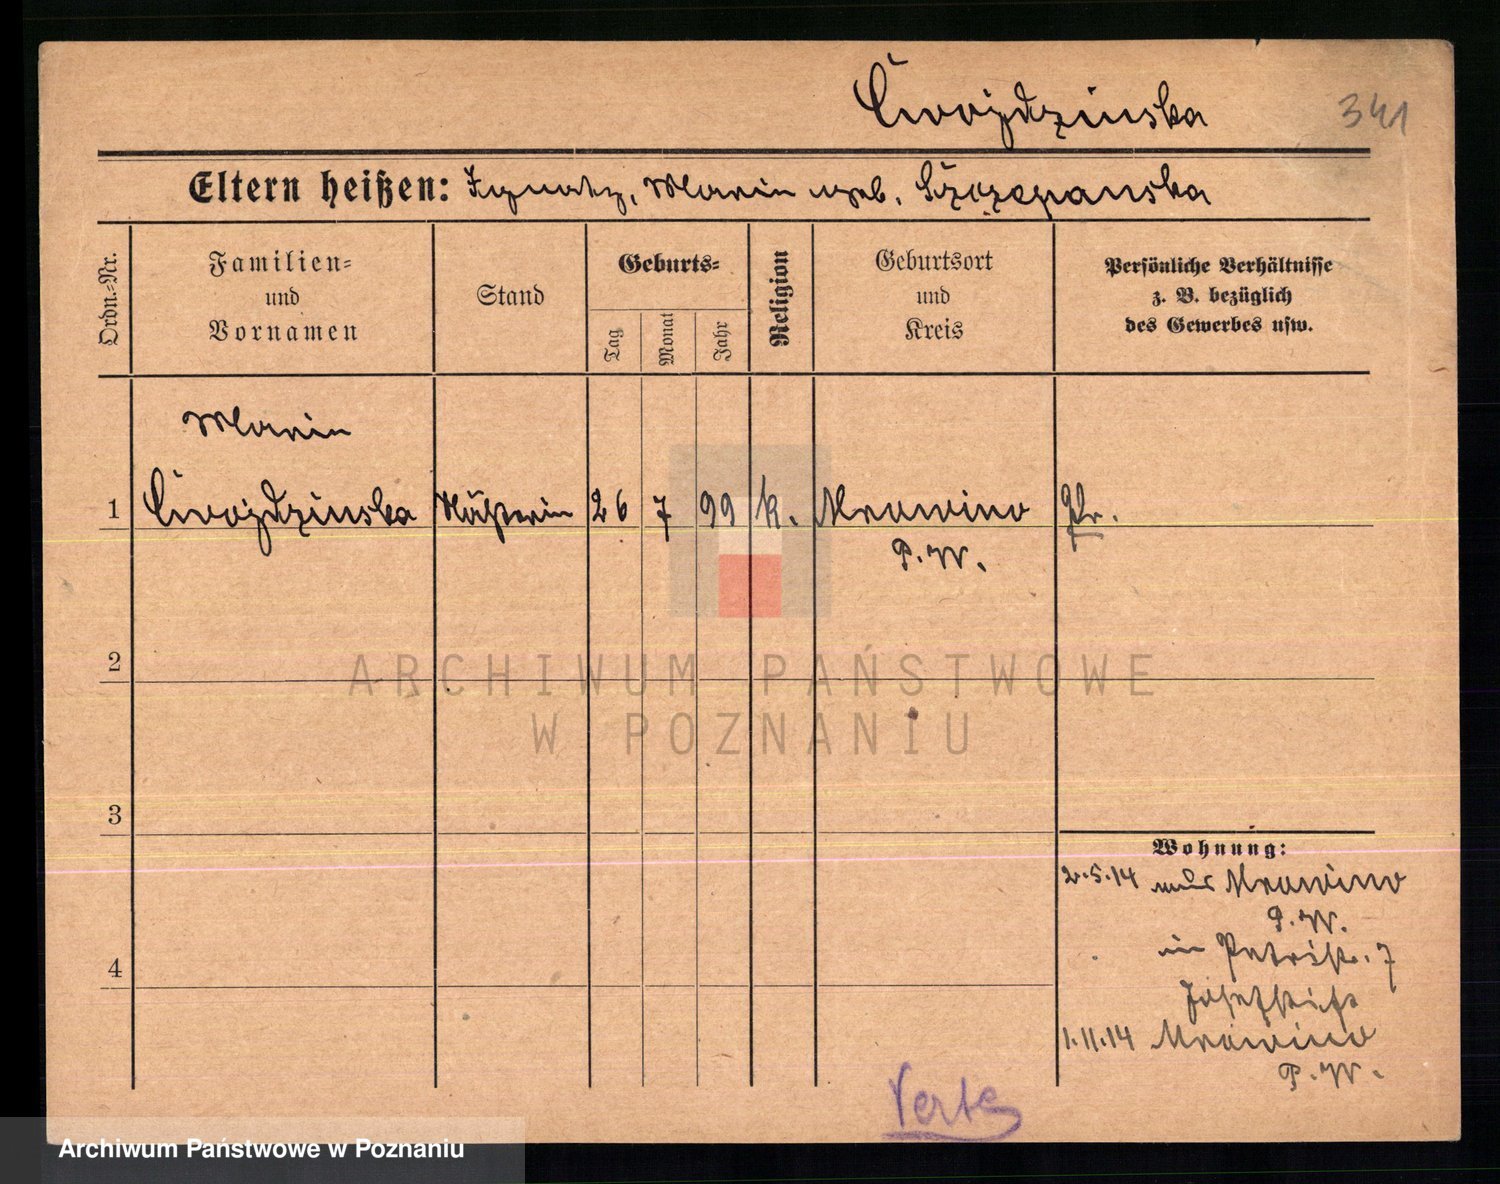 Cwojdzinska
341
Eltern heißen: Ignatz, Maria geb. Szczepanska
Ordn.=Nr.
Familien=
und
Vornamen
Stand
Geburts=
Tag
Monat
Jahr
Religion
Geburtsort
und
Kreis
Persönliche Verhältnisse
z. B. bezüglich
des Gewerbes usw.
Maria
1 Cwojdzinska Näherin 26 7 99 k. Mrowino Pr.
P. W.
2
ARCHIWUM PAŃSTWOWE
W POZNANIU
3
Wohnung:
2.5.14 aus Mrowino
P. W.
in Petristr. 7
4
Josefstift
1.11.14 Mrowino
P. W.
Verte
Archiwum Państwowe w Poznaniu